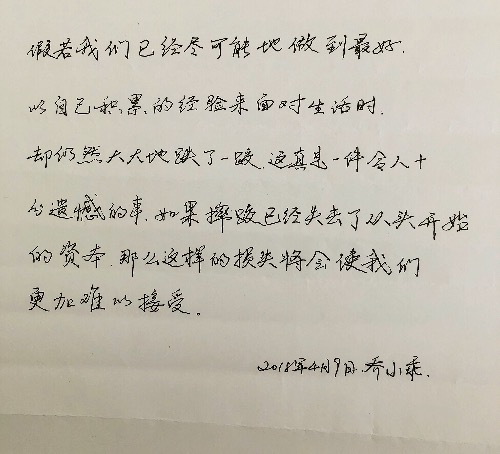 假若我们已经尽可能地做到最好.
以自己积累的经验来面对生活时.
却仍然大大地跌了一跤.这真是一件令人十
分遗憾的事.如果摔跤已经失去了从头开始
的资本.那么这样的损失将会使我们
更加难以接受。
2018年4月9日.乔小乖.